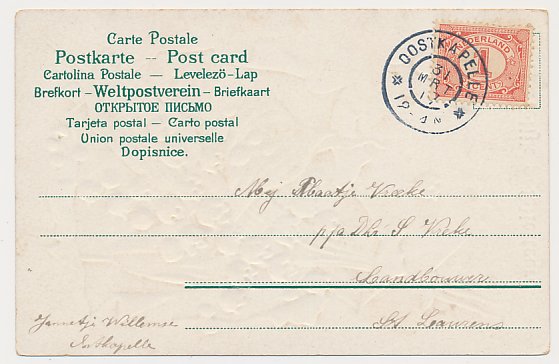 Carte Postale
Postkarte -- Post card
Cartolina Postale — Levelező-Lap
Brefkort -Weltpostverein- Briefkaart
ОТКРЫТОЕ ПИСЬМО
Tarjeta postal — Carto postal
Union postale universelle
Dopisnice.
NEDERLAND
OOSTKAPELLE
31
MRT
Mej Plaatje
p/a
Landbouwer
St Laurens
Jannetje Willemse
Oostkapelle